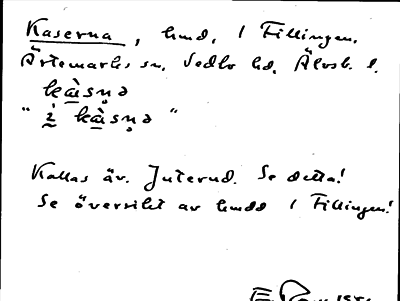 Kaserna, hmd, 1 Fillingen,
Ärtemarks sn, Vedbo hd, Älvsb. l.
kàsṇə
" i kàsṇə "
Kallas äv. Juterud. Se detta!
Se översikt av hmdd 1 Fillingen!